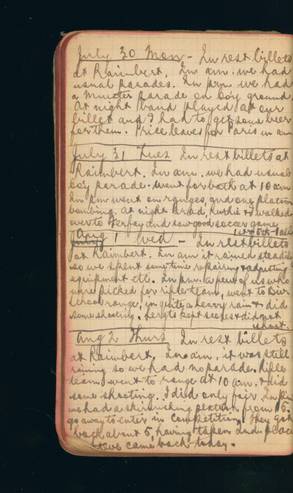 July 30 Mon - In rest billets
at Raimbert. In am. we had
usual parades. In pm. we had
a Muster Parade on boy ground.
At night band played at our
billet and I had to get some beer
for them. Price leaves for Paris in am
July 31 Tues In rest billets at
Raimbert. In am. we had usual
boy parade. went for bath at 10 am
In pm went on ranges, and one platoon
bombing. At night and walked
over to and saw good soccer game
Aug 1 Wed - In rest billets
at Raimbert. In am it rained steadily
so we spent some time repairing & adjusting
equipment etc. In pm twelve of us who
were picked for rifle team, went to
range, in quite a heavy rain & did
some shooting. kept score & did not
shoot.
Aug 2 Thurs In rest billets
at Raimbert. In am. it was still
raining so we had no parades. Rifle
team went to range at 10 am. & did
some shooting. I did only fair. In pm
we had a skirmishing platoon from
go away to enter in competition. They got
back about 5, having taken 2nd place
came back today.